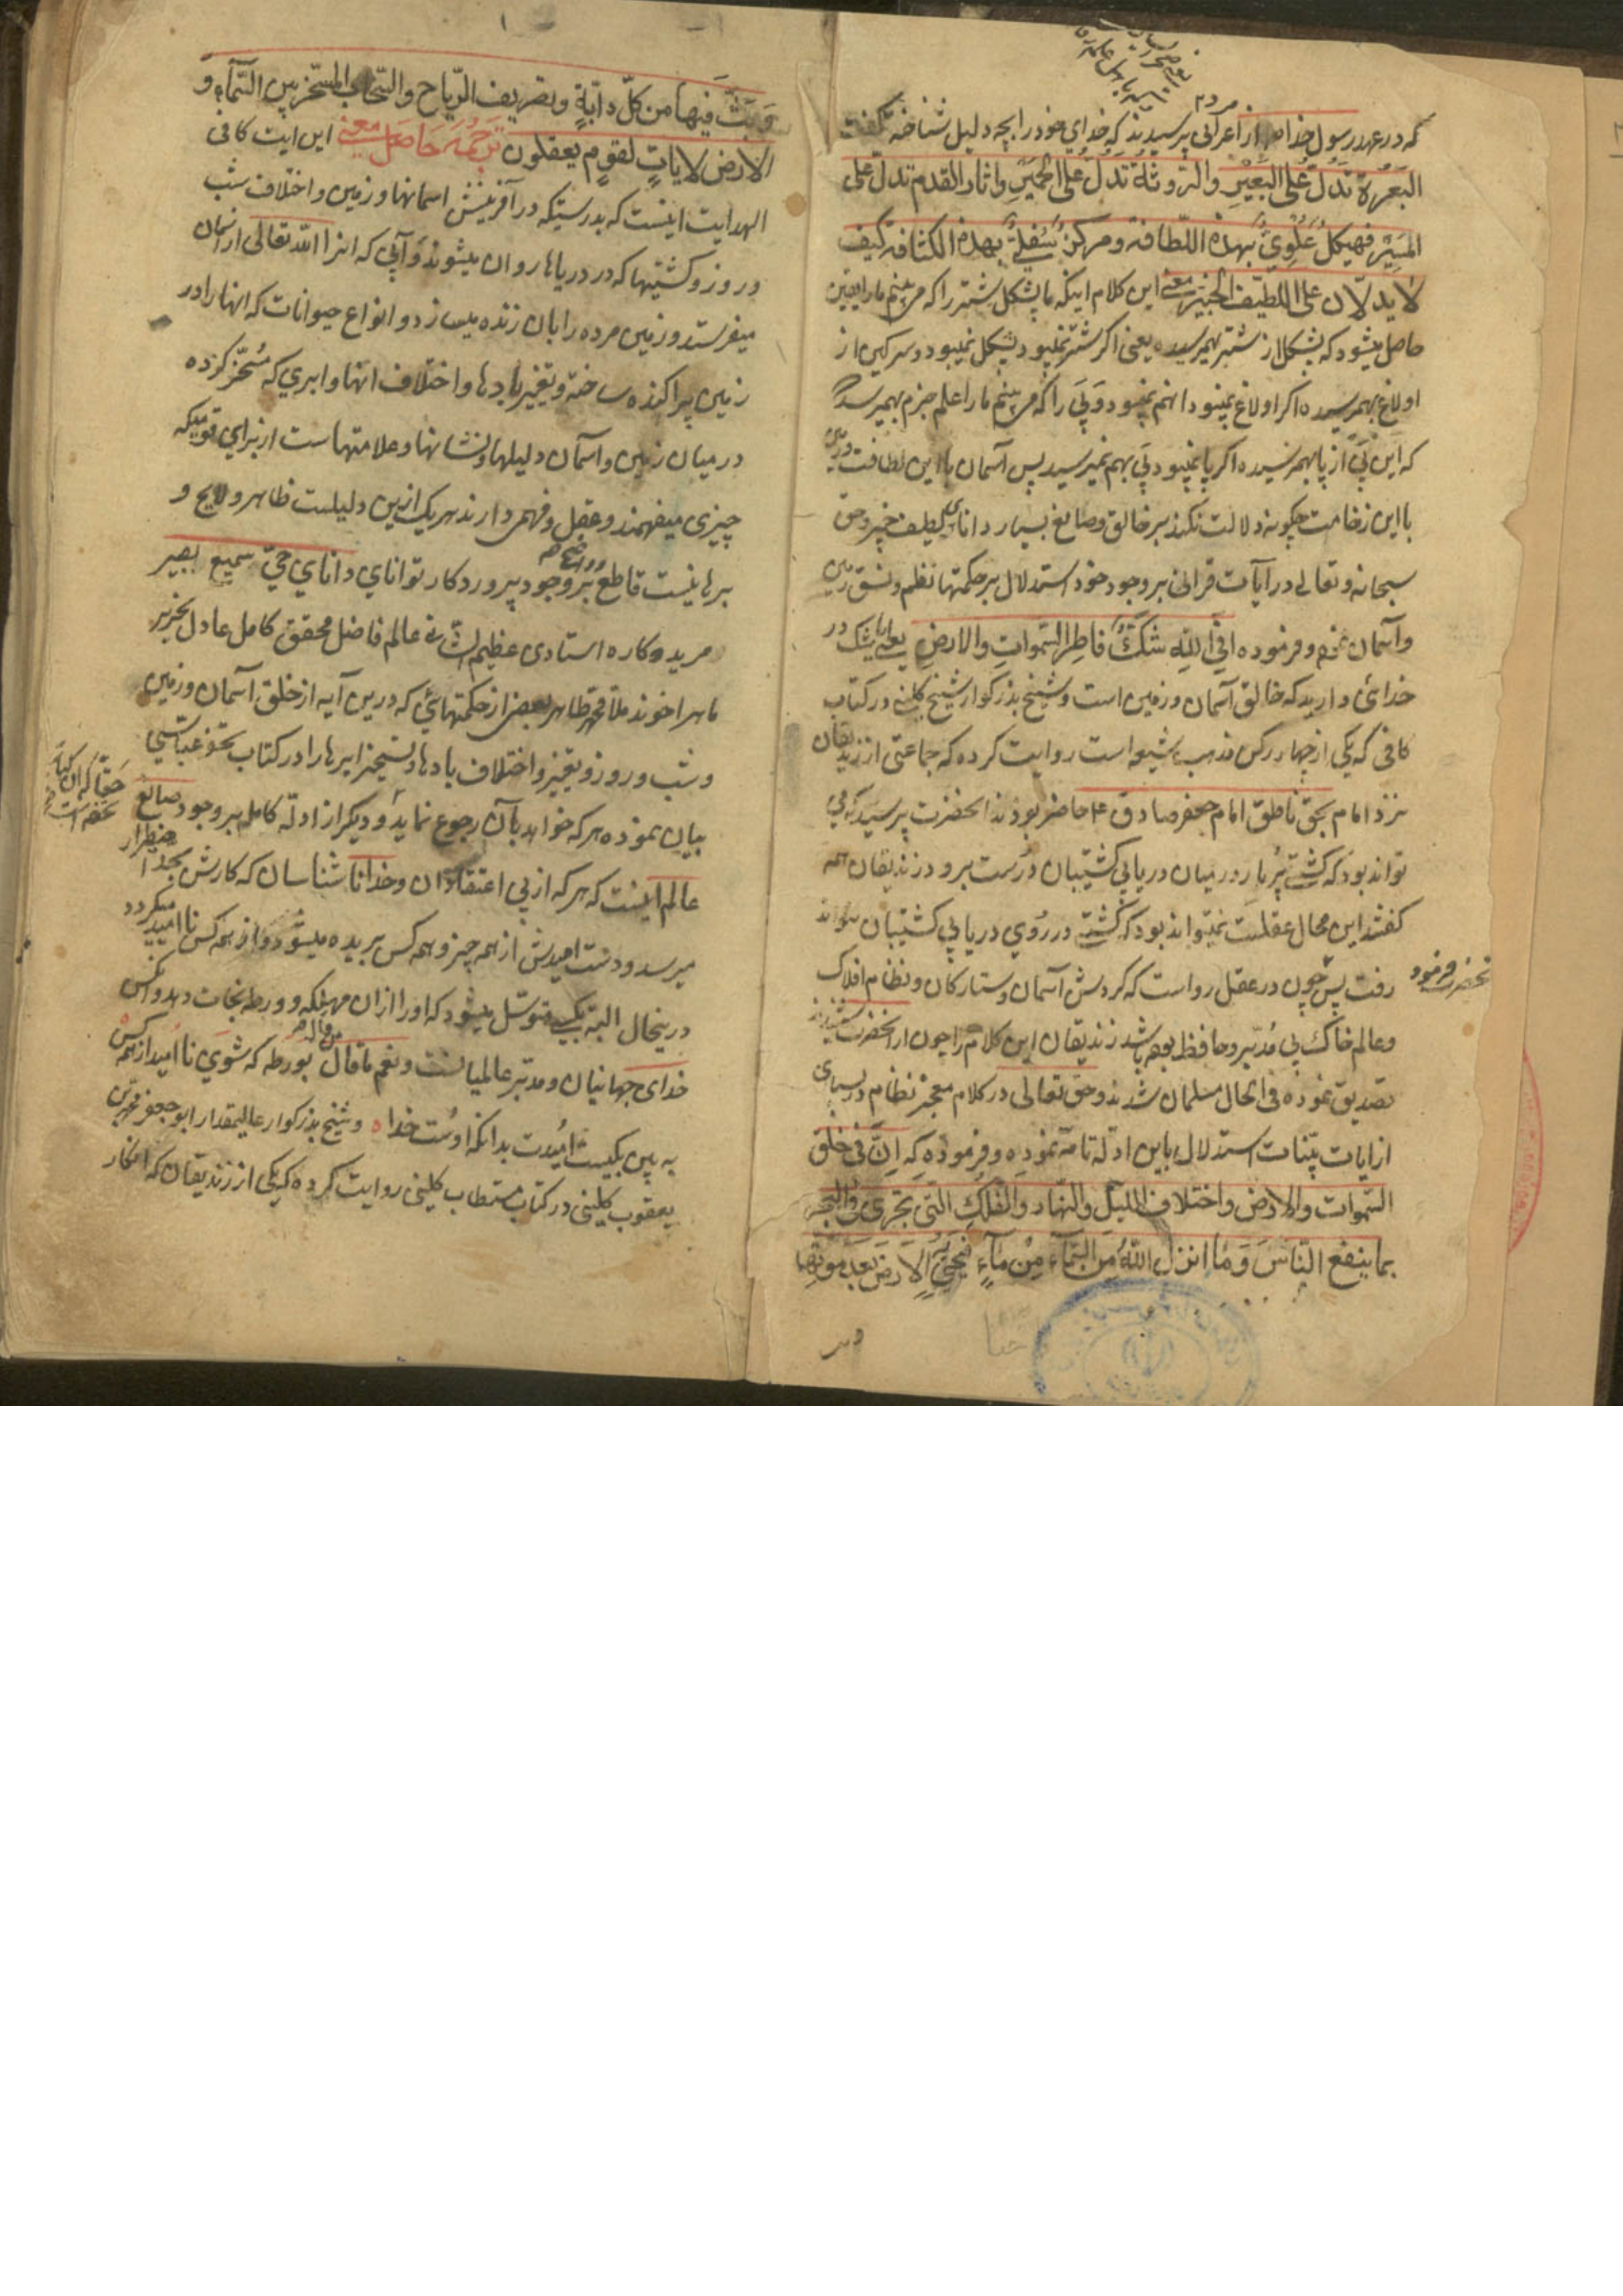 که در عهد رسول خدا از اعرابی پرسیدند که خدای خود را بچه دلیل شناختهٔ گفت
البَعْرَة تَدُلُّ عَلی البَعِیْرِ والرّوثَةُ تَدُلُّ عَلَی الحَمِیْرِ واثار القدم تدلّ علی
المَسِیْرْ فهیکلُ عُلْوِیٌّ بهذه اللّطافة ومرکزٌ سُفلِیٌّ بهذه الکثافة کیف
لا یدلّان علی اللطیف الخبیر معنی این کلام اینکه ما پشکل شتر را که می بینم ما را یقین
حاصل میشود که پشکل از شتر بهمرسیده یعنی اکر شتر نمیبود پشکل نمیبود وسرکین از
اولاغ بهمرسیده اکر اولاغ نمیبود انهم نمیبود وپَی را که می بینم ما را علم جزم بهمیرسد
که این پَی از پا بهمرسیده اکر پا نمیبود پَی بهم نمیرسید پس آسمان با این لطافت وزمین
با این زخامت چکونه دلالت نکند بر خالق وصانع بسیار دانای لطیف خبیر وحق
سبحانه وتعالی در آیات قرانی بر وجود خود استدلال بر حکمتها نظم ونسق زمین
وآسمان نموده وفرموده افی اللّهِ شکٌّ فاطِر السّموات والارضِ یعنی ایا شک در
خدائی دارید که خالق آسمان وزمین است وشیخ بزرکوار شیخ کلینی در کتاب
کافی که یکی از چهار رکن مذهب شیعه است روایت کرده که جماعتی از زندیقان
نزد امام بحق ناطق امام جعفر صادق ع حاضر بودند انحضرت پرسید که می
تواند بود که کشتی پُر بار در میان دریا بی کشتیبان درست برود زندیقان همه
کفتند این محال عقلست نمیتواند بود که کشتی در روی دریا بی کشتیبان تواند
انحضرت فرمود
رفت پس چون در عقل رواست که کردش آسمان وستارکان ونظام افلاک
وعالم خاک بی مُدبّر وحافظ بوده باشد زندیقان این کلام را چون از انحضرت شنیدند
تصدیق نموده فی الحال مسلمان شدند وحق تعالی در کلام معجز نظام در بسیاری
از ایات بیّنات استدلال باین ادلّه تامّه نموده وفرموده که اِنَّ فی خلق
السّموات والارض واختلاف اللیل والنّهار والفلک الّتی تجری فی البحر
بما ینفع النّاسَ وَمَا انزل اللّهُ مِنَ السّماءِ مِنْ مَاءٍ فَاَحْیٰی بِهِ الارضَ بعدَ موتها
وبثّ
وَبَثَّ فیها مِن کلّ دابّةٍ وتصریف الرّیاح والسّحاب المسخّر بین السّماء و
الارض لایاتٍ لقومٍ یعقلون ترجمه حاصل معنی این ایت کافی
الهدایت اینست که بدرستیکه در آفرینش اسمانها وزمین واختلاف شب
وروز وکشتیها که در دریاها روان میشوند وآبی که انرا اللّه تعالی از اسمان
میفرستد وزمین مرده را بان زنده میسازد وانواع حیوانات که انها را در
زمین پراکنده ساخته وتغییر بادها واختلاف انها وابری که مُسَخّر کرده
در میان زمین واسمان دلیلها ونشانها وعلامتهاست از برای قومیکه
چیزی میفهمند وعقل وفهم دارند هر یک ازین دلیلست ظاهر ولایح و
برهانیست قاطع بر وجود پروردکار توانای دانای حیّ سمیع بصیر
مرید وکاره استادی عظیم الشّان عالم فاضل محقق کامل عادل نحریر
ماهر اخوند ملّا محمد طاهر بعضی از حکمتهائی که درین آیه از خلق آسمان وزمین
وشب وروز وتغییر واختلاف بادها وتسخیر ابرها را در کتاب تحفه عباسی
حقّا که ان کتاب تحفه است
بیان نموده هر که خواهد بآن رجوع نماید ودیکر از ادلّه کامله بر وجود صانع
عالم اینست که هر که از بی اعتقادان وخدا ناشناسان که کارش بحد اضطرار
میرسد ودست امیدش از همه چیز وهمه کس بریده میشود واز همه کس نا امید میکردد
درینحال البته بکسی متوسّل میشود که او را ازان مهلکه وورطه نجات دهد وانکس
خدای جهانیان ومدبّر عالمیانست ونعم ما قال بورطه که شوی نا امید از همه کس
به بین بکیست امیدت بدانکه اوست خدا وشیخ بزرکوار عالیمقدار ابو جعفر محمد بن
یعقوب کلینی در کتاب مستطاب کلینی روایت کرده که یکی از زندیقان که انکار